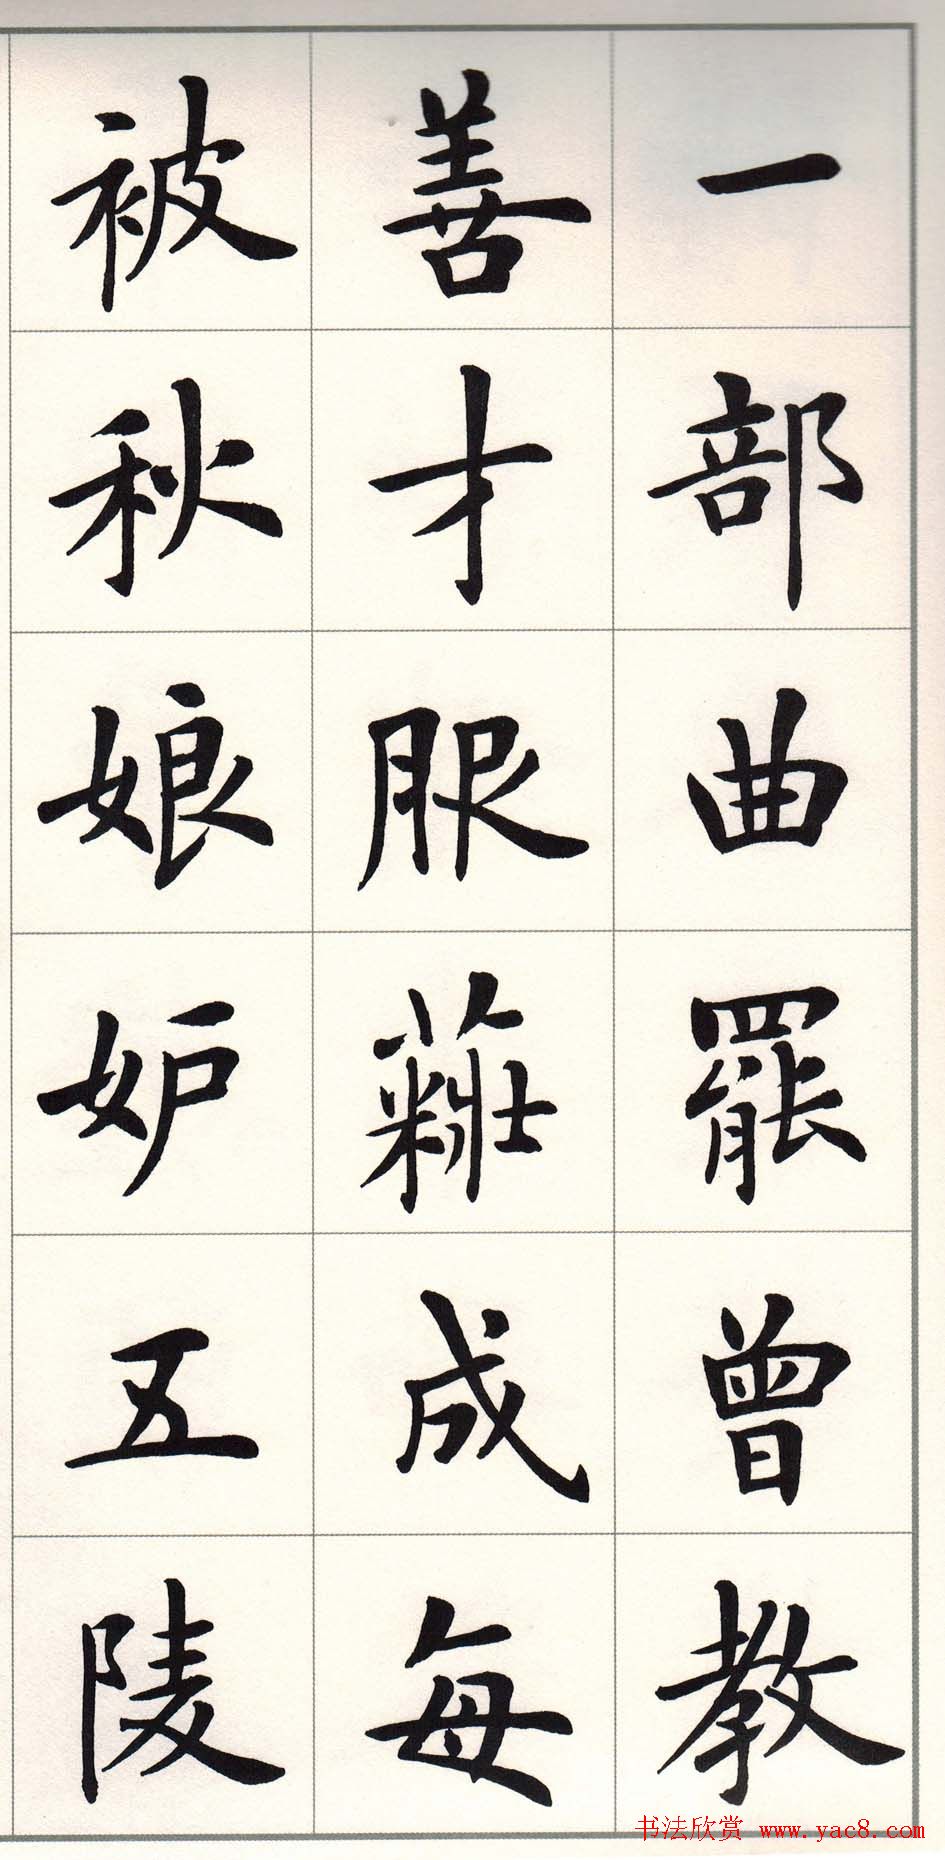 一部曲罷曾教
善才服蘣成每
被秋娘妒五陵
书法欣赏 www.yac8.com